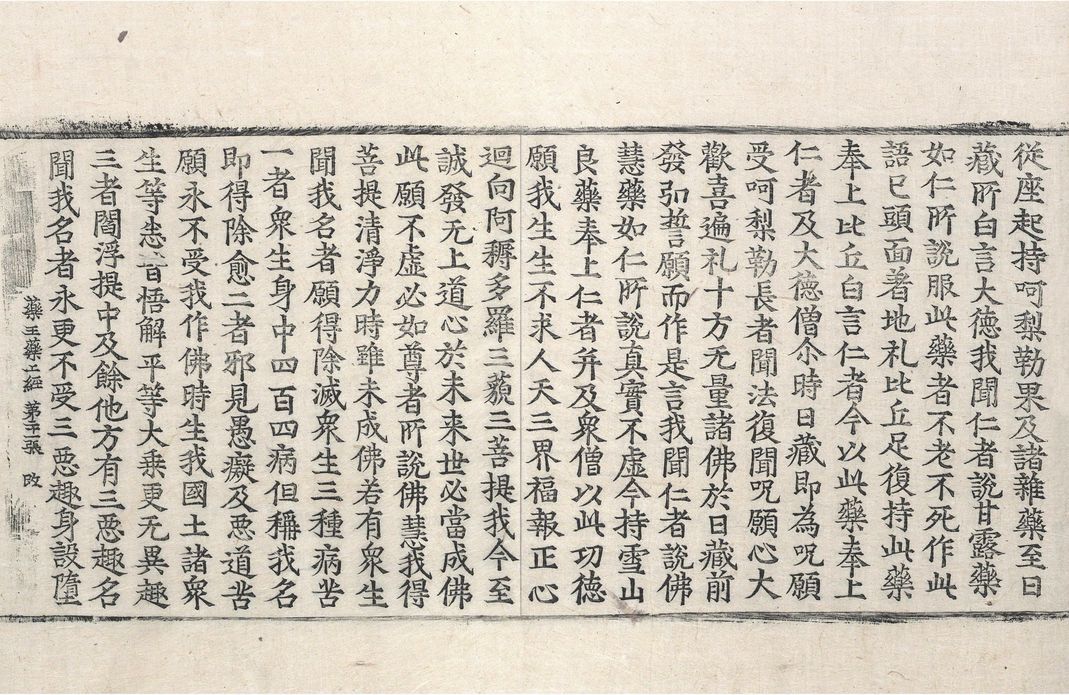 從座起持呵梨勒果及諸雜藥至日
藏所白言大德我聞仁者說甘露藥
如仁所說服此藥者不老不死作此
語已頭面著地礼比丘足復持此藥
奉上比丘白言仁者今以此藥奉上
仁者及大德僧尒時日藏即為呪願
受呵梨勒長者聞法復聞呪願心大
歡喜遍礼十方无量諸佛於日藏前
發弘誓願而作是言我聞仁者說佛
慧藥如仁所說真實不虛今持雪山
良藥奉上仁者并及眾僧以此功德
願我生生不求人天三界福報正心
迴向阿耨多羅三藐三菩提我今至
誠發无上道心於未来世必當成佛
此願不虛必如尊者所說佛慧我得
菩提清淨力時雖未成佛若有眾生
聞我名者願得除滅眾生三種病苦
一者眾生身中四百四病但稱我名
即得除愈二者邪見愚癡及惡道苦
願永不受我作佛時生我國土諸眾
生等悉皆悟解平等大乘更无異趣
三者閻浮提中及餘他方有三惡趣名
聞我名者永更不受三惡趣身設墮
藥王藥上經 第 張 改